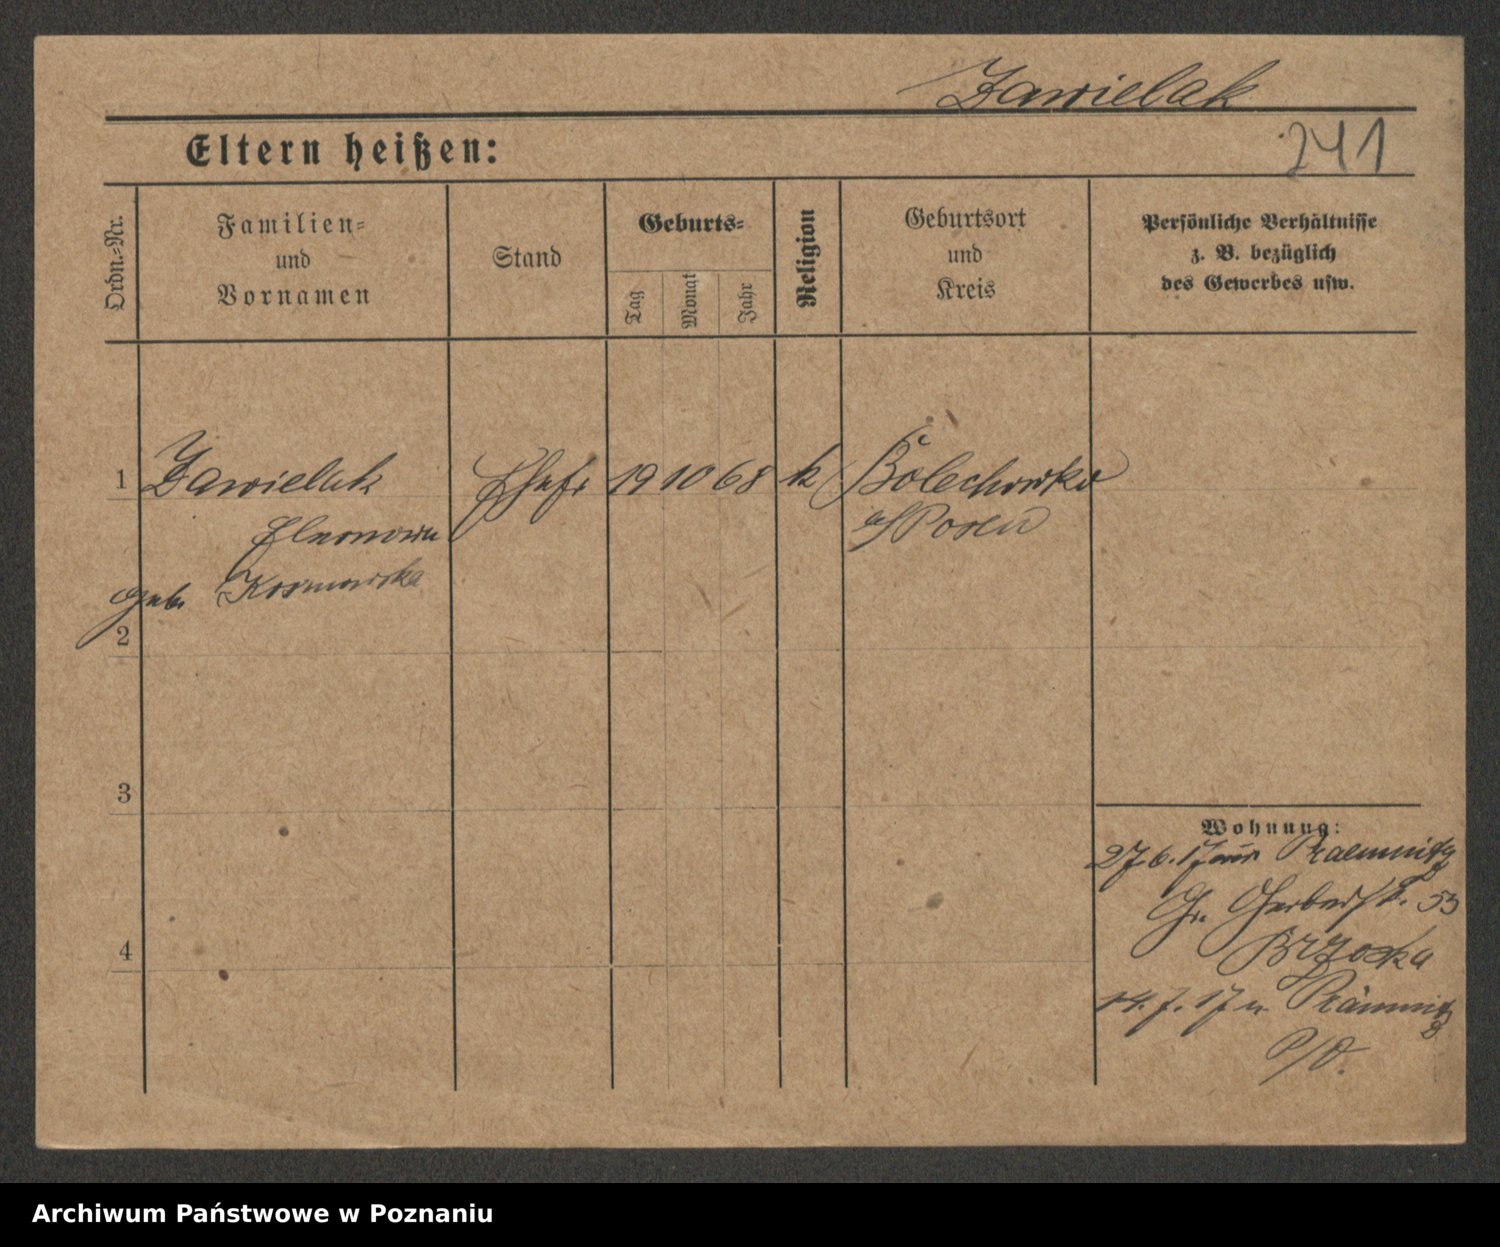 Zawielak
Eltern heißen:
241
Ordn.-Nr.
Familien-
und
Vornamen
Stand
Geburts-
Tag
Monat
Jahr
Religion
Geburtsort
und
Kreis
Persönliche Verhältnisse
z. B. bezüglich
des Gewerbes usw.
1 Zawielak Ehefr 19 10 68 k Bolechowko
Eleonora
Posen
geb. Kosmowska
2
3
4
Wohnung:
27.6.17
Gr. Gerberst. 53
Brzoska
14.7.17 n.
P/O.
Archiwum Państwowe w Poznaniu